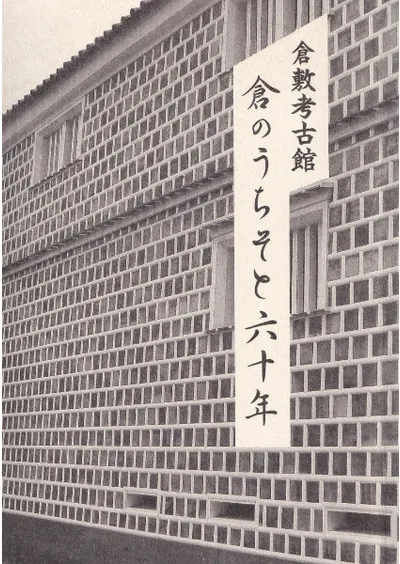 倉敷考古館
倉のうちそと六十年